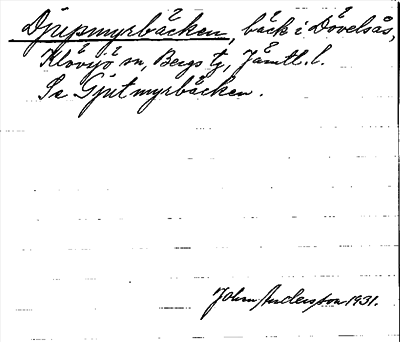 Djupmyrbäcken, bäck i Dövelsås,
Klövsjö sn, Bergs tg, Jämtl. l.
Se Gjutmyrbäcken.
John Andersson 1931.